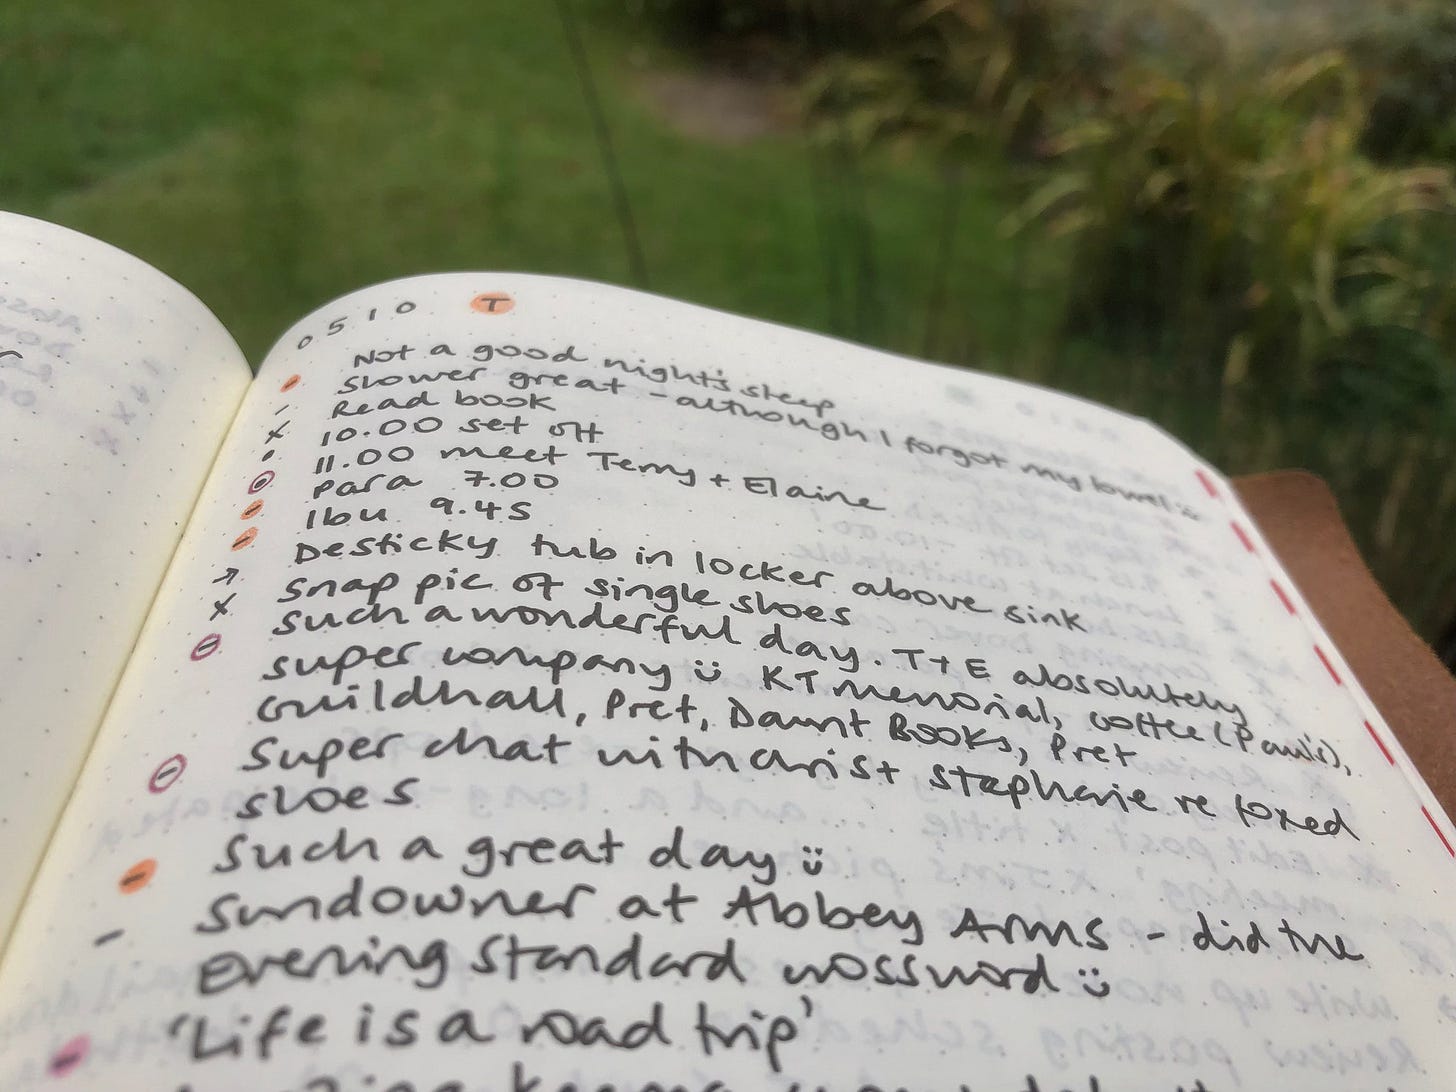 0510 T
Not a good night's sleep
- Shower great - although I forgot my towel :)
- Read book
x 10.00 set off
• 11.00 meet Terry + Elaine
Para 7.00
- Ibu 9.45
- Desticky tub in locker above sink
↗ Snap pic of single shoes
x Such a wonderful day. T+E absolutely
super company :) KT memorial, coffee (Paul's),
Guildhall, Pret, Daunt Books, Pret
- Super chat with Christ Stephanie re foxed
shoes
- Such a great day :)
- Sundowner at Abbey Arms - did the
Evening Standard crossword :)
- 'Life is a road trip'